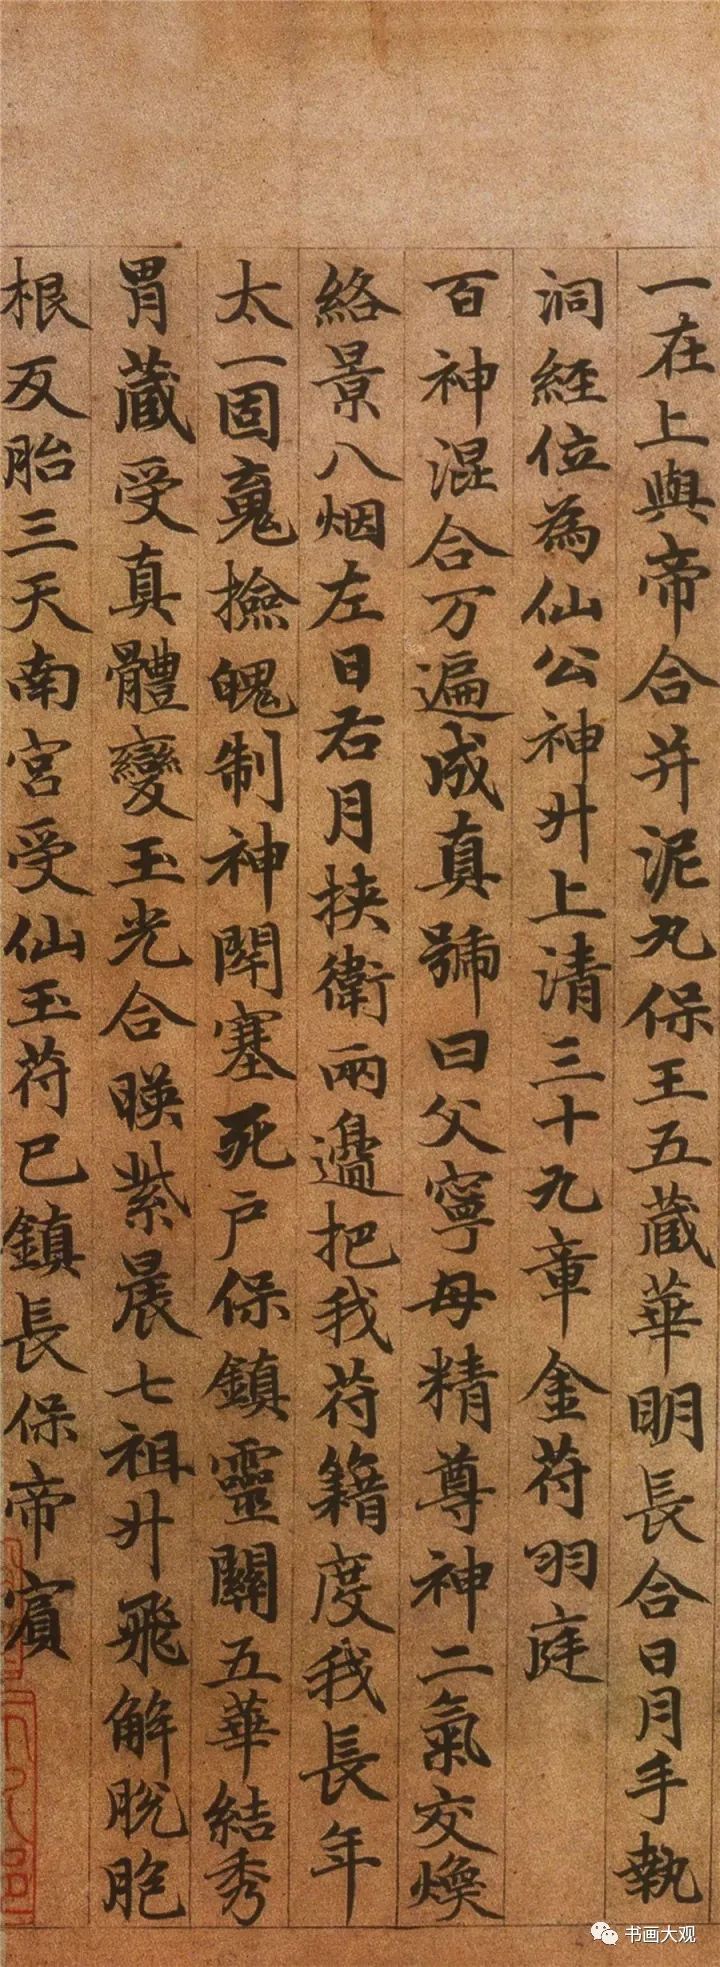 一在上與帝合并泥丸保王五蔵華明長合日月手執
洞經位為仙公神升上清三十九章金苻羽庭
百神混合万遍成真號曰父寧母精尊神二氣交煥
絡景八烟左日右月挾衛兩邊把我苻籍度我長年
太一固䰟撿魄制神閇塞死户保鎮靈關五華結秀
胃蔵受真體變玉光合暎紫晨七祖升飛解脫胞
根反胎三天南宮受仙玉苻已鎮長保帝賓
书画大观